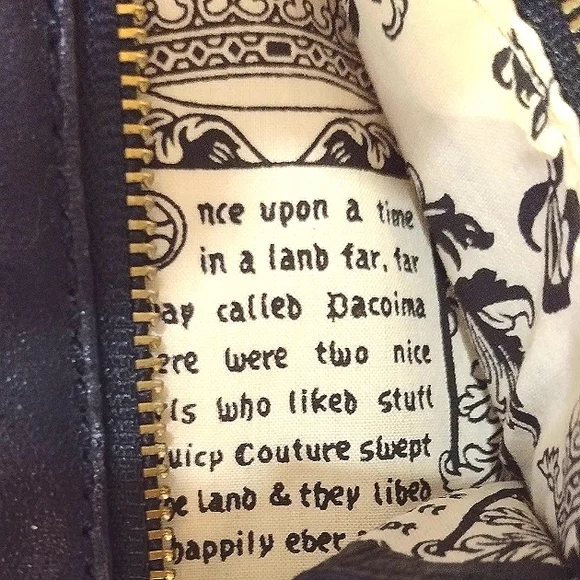 Once upon a time
in a land far, far
ay called Pacoima
ere were two nice
ls who liked stuff
uicy Couture swept
e land & they lived
happily ever